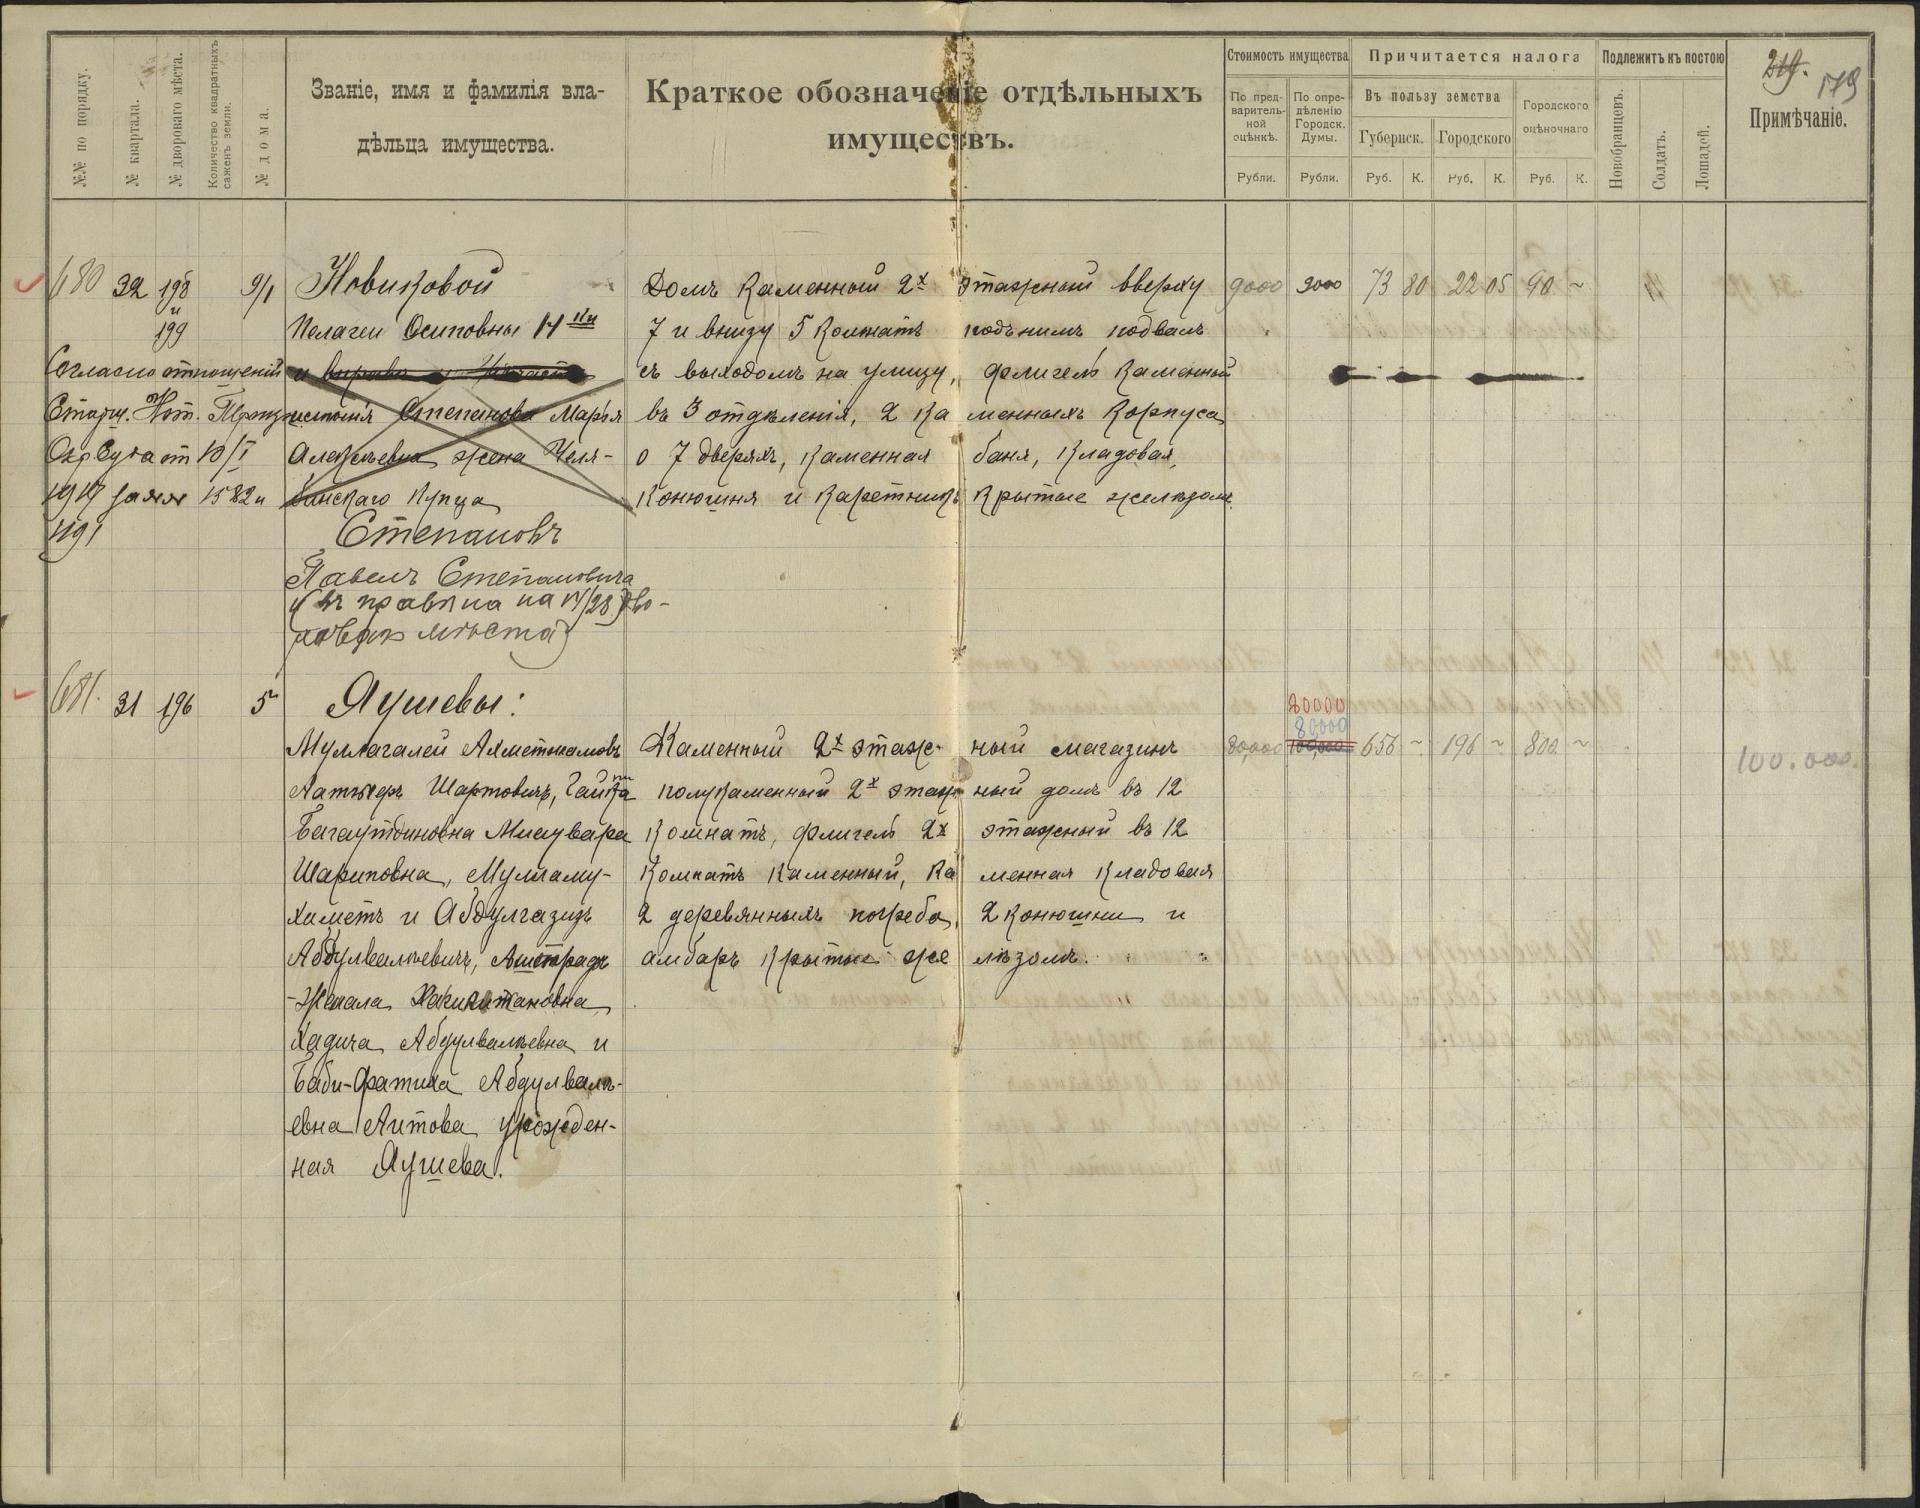 №№ по порядку.
№ квартала.
№ двороваго мѣста.
Количество квадратныхъ саженъ земли.
№ дома.
Званіе, имя и фамилія вла-
дѣльца имущества.
Краткое обозначеніе отдѣльныхъ
имуществъ.
Стоимость имущества
По пред-
варитель-
ной
оцѣнкѣ.
Рубли.
По опре-
дѣленію
Городск.
Думы.
Рубли.
Причитается налога
Въ пользу земства
Губернск.
Городского
Руб. К. Руб. К.
Городского
оцѣночнаго
Руб. К.
Подлежитъ къ постою
Новобранцевъ.
Солдатъ.
Лошадей.
179
Примѣчаніе.
680 32 198 и 199 9/1
Новиковой
Пелагеи Осиповны
Степанова Марья
Алексѣевна жена Челя-
бинскаго Купца
Степановъ
Павелъ Степановичъ
мѣста)
Согласно отношеній
Старш. Нот. Троиц.
Окр. Суда от 10/I
1917 за №№ 1582 и
1191
Домъ каменный 2х этажный вверху
7 и внизу 5 комнатъ подъ нимъ подвалъ
съ выходомъ на улицу, флигель каменный
въ 3 отдѣленія, 2 каменныхъ корпуса
о 7 дверяхъ, каменная баня, кладовая,
конюшня и каретникъ крытые желѣзомъ.
9000 9000 73 80 22 05 90 ~
681. 31 196 5
Яушевы:
Муллагалей Ахметжановъ
Латыфъ Шариповичъ,
Багаутдиновна Мнаувара
Шариповна, Мулламу-
хаметъ и Абдулгазизъ
Абдулвалѣевичи,
-Жамала
Хадича Абдулвалѣевна и
Биби-Фатиха Абдулвалѣ-
евна Аитова урожден-
ная Яушева.
Каменный 2х этажный магазинъ
полукаменный 2х этажный домъ въ 12
комнатъ, флигель 2х этажный въ 12
комнатъ каменный, каменная кладовая
2 деревянныхъ погреба, 2 конюшни и
амбаръ крытые желѣзомъ.
80000
80,000
80,000 100,000 656 ~ 196 ~ 800 ~
100.000.